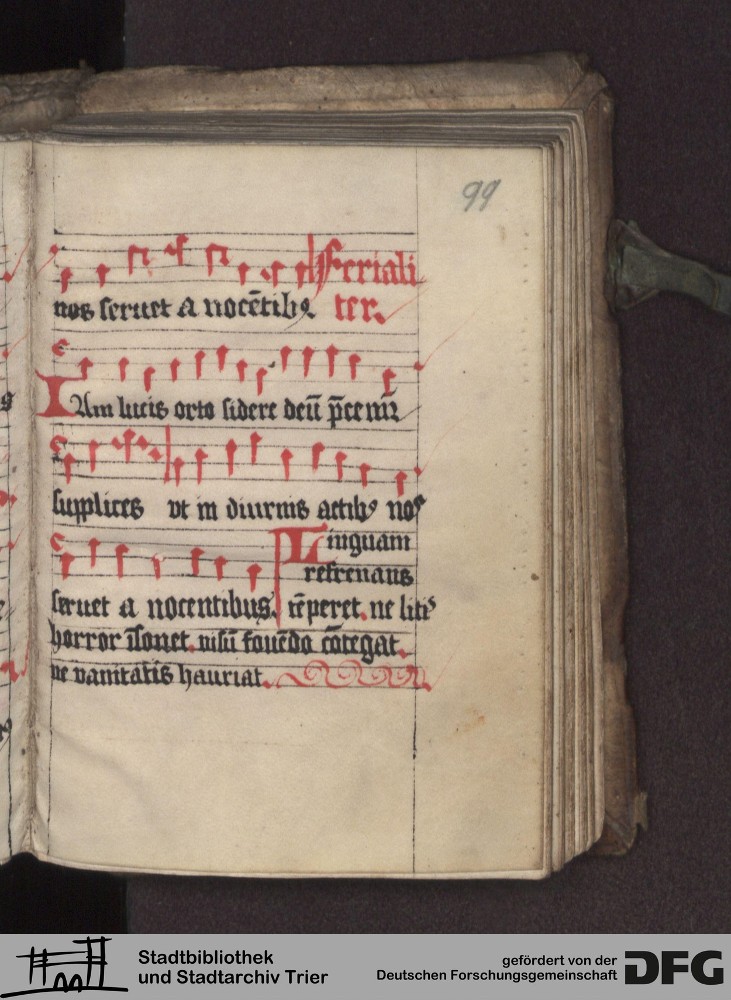 99
Feriali
nos seruet a nocētibꝫ ter.
IAm lucis orto sidere deū p̄cemur
supplices vt in diurnis actibꝰ nos
Linguam
refrenans
seruet a nocentibus. tēperet. ne litꝭ
horror īsonet. uisū fouēdo cōtegat.
ne vanitatis hauriat.
Stadtbibliothek
und Stadtarchiv Trier
gefördert von der
Deutschen Forschungsgemeinschaft
DFG